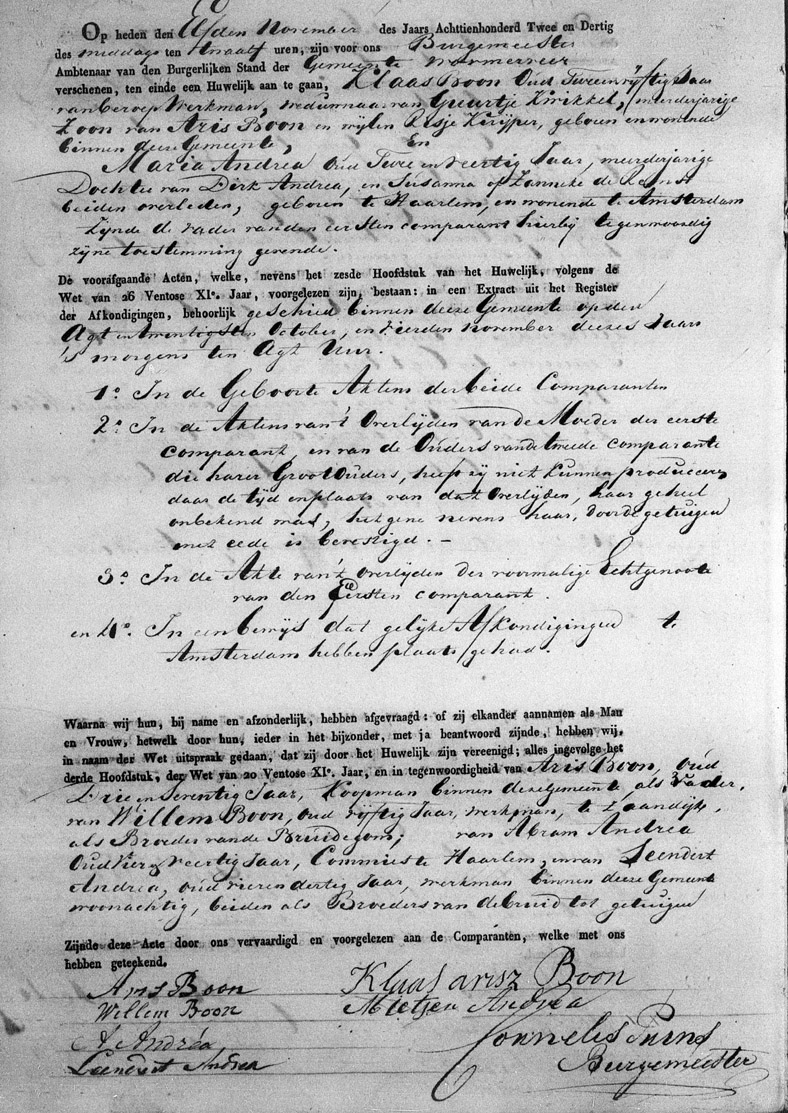 Op heden den Elfden November des Jaars Achttienhonderd Twee en Dertig
des middags ten twaalf uren, zijn voor ons Burgemeester
Ambtenaar van den Burgerlijken Stand der Gemeente Wormerveer
verschenen, ten einde een Huwelijk aan te gaan, Klaas Boon Oud Twee en vijftig Jaar
van beroep Werkman, weduwnaar van Geurtje Kwikkel, meerderjarige
Zoon van Aris Boon en wijlen Kuijper, geboren en wonende
binnen deeze Gemeente, En
Maria Andrea Oud Twee en Veertig Jaar, meerderjarige
Dochter van Dirk Andrea, en Susanna of Zanneke de
beiden overleden, geboren te Haarlem, en wonende te Amsterdam
Zijnde de vader van den eersten comparant hierbij tegenwoordig
zijne toestemming gevende.
De voorafgaande Acten, welke, nevens het zesde Hoofdstuk van het Huwelijk, volgens de
Wet van 26 Ventose XIe. Jaar, voorgelezen zijn, bestaan: in een Extract uit het Register
der Afkondigingen, behoorlijk geschied binnen deeze Gemeente op den
Agt en Twentigsten October, en vierden November deezes Jaars
's morgens ten Agt Uur.
1o. In de Geboorte Aktens der beide Comparanten
2o. In de Aktens van 't Overlijden van de Moeder der eerste
comparant, en van de Ouders van de tweede comparante
die harer Groot Ouders, heeft zij niet kunnen produceeren
daar de tijd en plaats van dat Overlijden, haar geheel
onbekend was, hetgene nevens haar, door de getuigen
met eede is bevestigd. –
3o. In de Akte van 't overlijden der voormalige Echtgenoote
van den Eersten comparant.
en 4o. In een bewijs dat gelijke Afkondigingen te
Amsterdam hebben plaats gehad.
Waarna wij hun, bij name en afzonderlijk, hebben afgevraagd: of zij elkander aannamen als Man
en Vrouw, hetwelk door hun, ieder in het bijzonder, met ja beantwoord zijnde, hebben wij,
in naam der Wet uitspraak gedaan, dat zij door het Huwelijk zijn vereenigd; alles ingevolge het
derde Hoofdstuk, der Wet van 20 Ventose XIe. Jaar, en in tegenwoordigheid van Aris Boon, oud
Drie en Seventig Jaar, Koopman binnen deze gemeente als Vader,
van Willem Boon, oud vijftig Jaar, werkman, te Zaandijk,
als Broeder van de Bruidegom; van Abram Andrea
Oud Vier en Veertig Jaar, Commies te Haarlem, en van Leendert
Andrea, oud vier en dertig Jaar, werkman binnen deeze Gemeente
woonachtig, beiden als Broeders van de bruid tot getuigen
Zijnde deze Acte door ons vervaardigd en voorgelezen aan de Comparanten, welke met ons
hebben geteekend.
Aris Boon Klaas arisz Boon
Willem Boon Mietjen Andrea
A Andréa Cornelis
Leendert Andrea Burgemeester